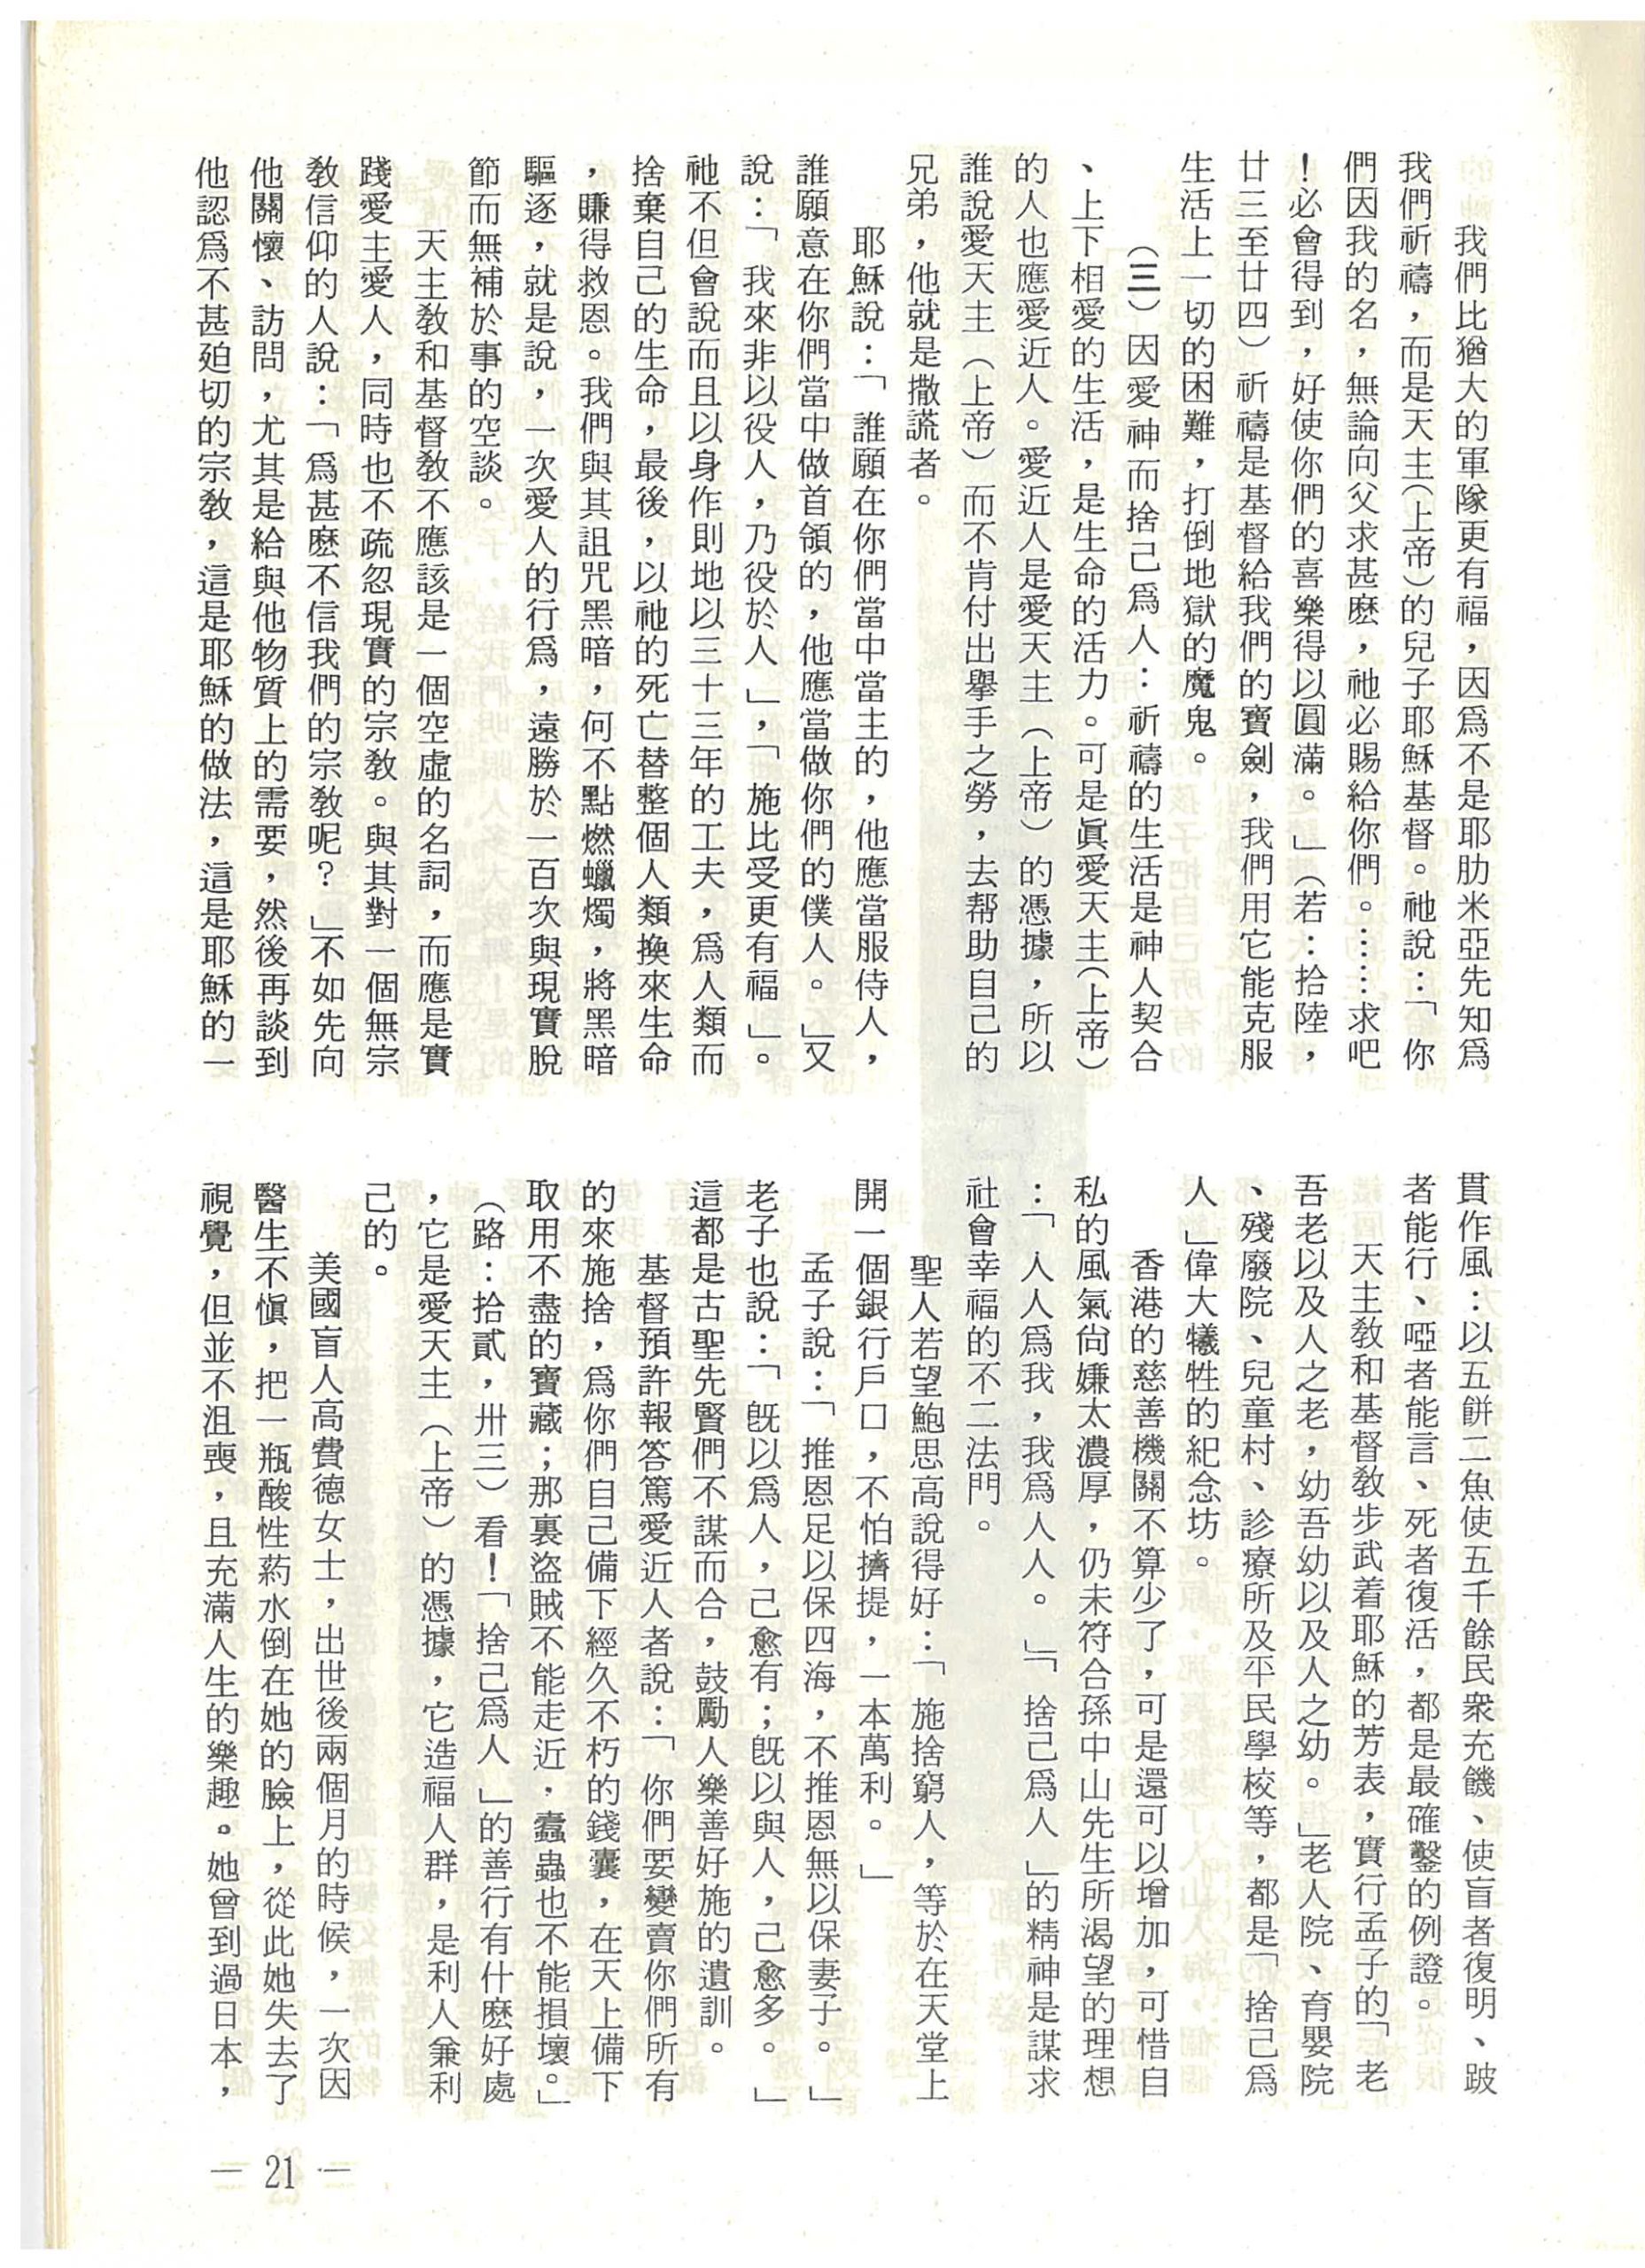 我們比猶大的軍隊更有福，因爲不是耶肋米亞先知爲
我們祈禱，而是天主（上帝）的兒子耶穌基督。祂說：「你
們因我的名，無論向父求甚麽，祂必賜給你們。……求吧
！必會得到，好使你們的喜樂得以圓滿。」（若：拾陸，
廿三至廿四）祈禱是基督給我們的寶劍，我們用它能克服
生活上一切的困難，打倒地獄的魔鬼。
（三）因愛神而捨己爲人：祈禱的生活是神人契合
、上下相愛的生活，是生命的活力。可是眞愛天主（上帝）
的人也應愛近人。愛近人是愛天主（上帝）的憑據，所以
誰說愛天主（上帝）而不肯付出舉手之勞，去帮助自己的
兄弟，他就是撒謊者。
耶穌說：「誰願在你們當中當主的，他應當服侍人，
誰願意在你們當中做首領的，他應當做你們的僕人。」又
說：「我來非以役人，乃役於人」，「施比受更有福」。
祂不但會說而且以身作則地以三十三年的工夫，爲人類而
捨棄自己的生命，最後，以祂的死亡替整個人類換來生命
，賺得救恩。我們與其詛咒黑暗，何不點燃蠟燭，將黑暗
驅逐，就是說，一次愛人的行爲，遠勝於一百次與現實脫
節而無補於事的空談。
天主教和基督教不應該是一個空虛的名詞，而應是實
踐愛主愛人，同時也不疏忽現實的宗教。與其對一個無宗
教信仰的人說：「爲甚麽不信我們的宗教呢？」不如先向
他關懷、訪問，尤其是給與他物質上的需要，然後再談到
他認爲不甚廹切的宗教，這是耶穌的做法，這是耶穌的一
貫作風：以五餅二魚使五千餘民衆充饑、使盲者復明、跛
者能行、啞者能言、死者復活，都是最確鑿的例證。
天主教和基督教步武着耶穌的芳表，實行孟子的「老
吾老以及人之老，幼吾幼以及人之幼。」老人院、育嬰院
、殘廢院、兒童村、診療所及平民學校等，都是「捨己爲
人」偉大犧牲的紀念坊。
香港的慈善機關不算少了，可是還可以增加，可惜自
私的風氣尙嫌太濃厚，仍未符合孫中山先生所渴望的理想
：「人人爲我，我爲人人。」「捨己爲人」的精神是謀求
社會幸福的不二法門。
聖人若望鮑思高說得好：「施捨窮人，等於在天堂上
開一個銀行戶口，不怕擠提，一本萬利。」
孟子說：「推恩足以保四海，不推恩無以保妻子。」
老子也說：「旣以爲人，己愈有；旣以與人，己愈多。」
這都是古聖先賢們不謀而合，鼓勵人樂善好施的遺訓。
基督預許報答篤愛近人者說：「你們要變賣你們所有
的來施捨，爲你們自己備下經久不朽的錢囊，在天上備下
取用不盡的寶藏；那裏盜賊不能走近，蠹蟲也不能損壞。」
（路：拾貳，卅三）看！「捨己爲人」的善行有什麽好處
，它是愛天主（上帝）的憑據，它造福人群，是利人兼利
己的。
美國盲人高費德女士，出世後兩個月的時候，一次因
醫生不愼，把一瓶酸性葯水倒在她的臉上，從此她失去了
視覺，但並不沮喪，且充滿人生的樂趣。她曾到過日本，
— 21 —